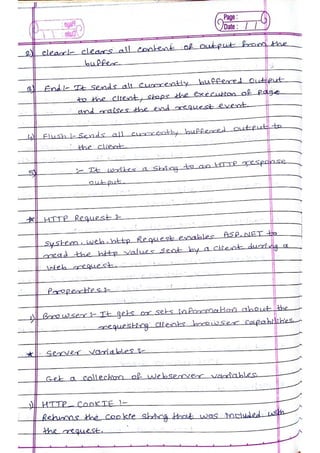 Page :
Date : / /
2) clear :- clears all content of output from the
buffer.
3) End :- It sends all currently buffered output
to the client, stops the execution of page
and raises the end request event.
4) Flush :- Sends all currently buffered output to
the client.
5) :- It writes a string to an HTTP response
output.
* HTTP Request :-
System.web.http Request enables ASP.NET to
read the http values sent by a client during a
web request.
Properties :-
1) Browser :- It gets or sets information about the
requesting clients browser capabilities
* Server Variables :-
Get a collection of webserver variables
1) HTTP_COOKIE :-
Returns the cookie string that was included with
the request.